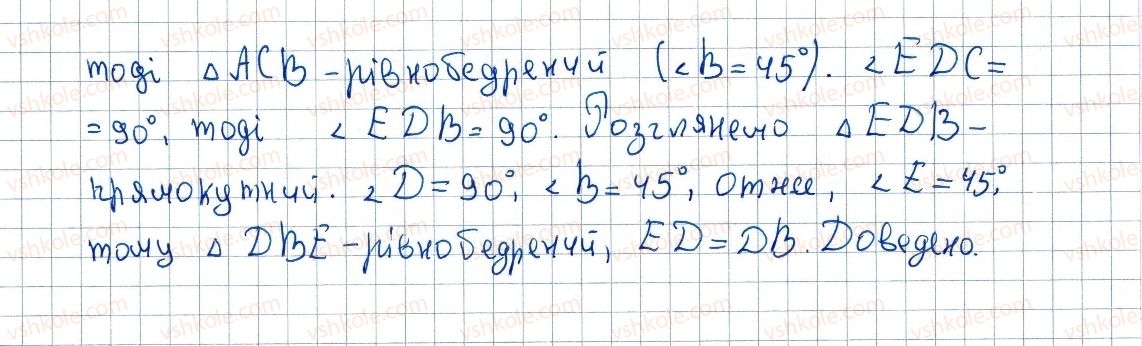 тоді △ ACB - рівнобедрений (∠B = 45°). ∠EDC =
= 90°, тоді ∠EDB = 90°. Розглянемо △ EDB -
прямокутний. ∠D = 90°, ∠B = 45°, Отже, ∠E = 45°,
тому △ DBE - рівнобедрений, ED = DB. Доведено.